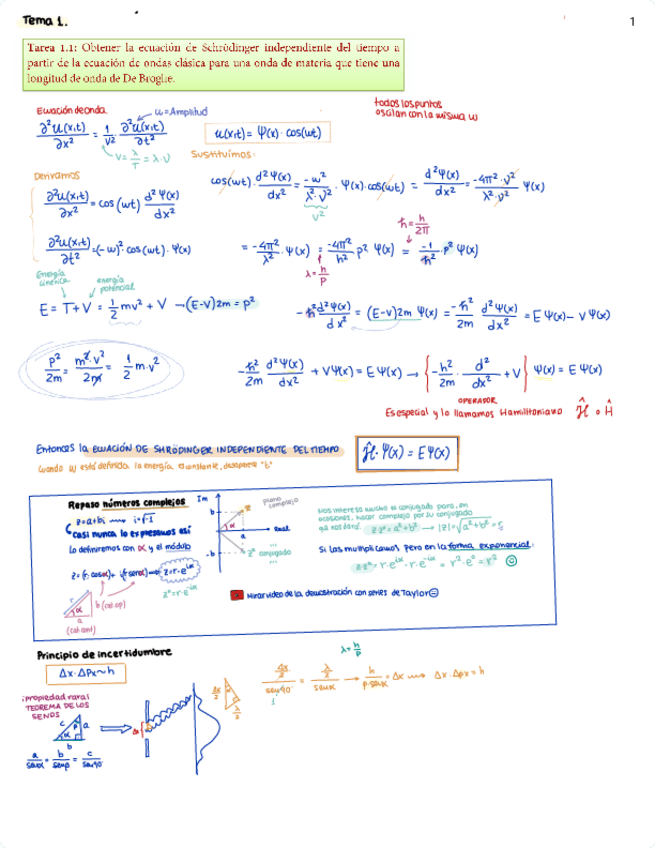 Tema 1.
1
Tarea 1.1: Obtener la ecuación de Schrödinger independiente del tiempo a
partir de la ecuación de ondas clásica para una onda de materia que tiene una
longitud de onda de De Broglie.
Ecuación de onda.
u = Amplitud
todos los puntos
oscilan con la misma w
∂²u(x,t)/∂x² = 1/v² · ∂²u(x,t)/∂t²
u(x,t) = Ψ(x) · cos(wt)
v = λ/T = λ·ν
Sustituímos:
Derivamos
cos(wt) · d²Ψ(x)/dx² = -w²/λ²·ν² · Ψ(x)·cos(wt) = d²Ψ(x)/dx² = -4π²·ν²/λ²·ν² Ψ(x)
v²
∂²u(x,t)/∂x² = cos(wt) d²Ψ(x)/dx²
ħ = h/2π
∂²u(x,t)/∂t² = (-w)²·cos(wt)·Ψ(x)
= -4π²/λ² · Ψ(x) = -4π²/h² p² Ψ(x) = -1/ħ² · p² Ψ(x)
λ = h/p
Energía cinética
energía potencial
E = T+V = 1/2 mv² + V → (E-V)2m = p²
-ħ² d²Ψ(x)/dx² = (E-V)2m Ψ(x) = -ħ²/2m d²Ψ(x)/dx² = EΨ(x) - VΨ(x)
p²/2m = m²·v²/2m = 1/2 m·v²
-ħ²/2m d²Ψ(x)/dx² + VΨ(x) = EΨ(x) → {-ħ²/2m · d²/dx² + V} Ψ(x) = EΨ(x)
OPERADOR
Es especial y lo llamamos Hamiltoniano Ĥ o Ĥ
Entonces la ECUACIÓN DE SHRÖDINGER INDEPENDIENTE DEL TIEMPO
Ĥ·Ψ(x) = EΨ(x)
cuando w está definida la energía es constante, desaparece "t"
Repaso números complejos
z = a+bi → i = √-1
casi nunca lo expresamos así
Lo definiremos con α y el módulo
z = (r·cosα) + i(r·senα) → z = r·e^iα
z* = r·e^-iα
r
α
b (cat.op)
a
(cat.cont)
Im
plano complejo
b
z
α
Real
a
-b
z* conjugado
...
Nos interesa mucho el conjugado para, en
ocasiones, hacer complejo por su conjugado
z·z* = a²+b² → |z| = √a²+b² = r
Si los multiplicamos pero en la forma exponencial:
z·z* = r·e^iα · r·e^-iα = r²·e⁰ = r²
Mirar video de la demostración con series de Taylor
Principio de incertidumbre
λ = h/p
Δx·Δpx ~ h
Δx/2 / sen90 = λ/2 / senα → h/p·senα = Δx → Δx·Δpx = h
1
¡propiedad rara!
TEOREMA DE LOS
SENOS
c
β
a
α
b
a/senα = b/senβ = c/sen90
Δx
Δx/2
λ/2